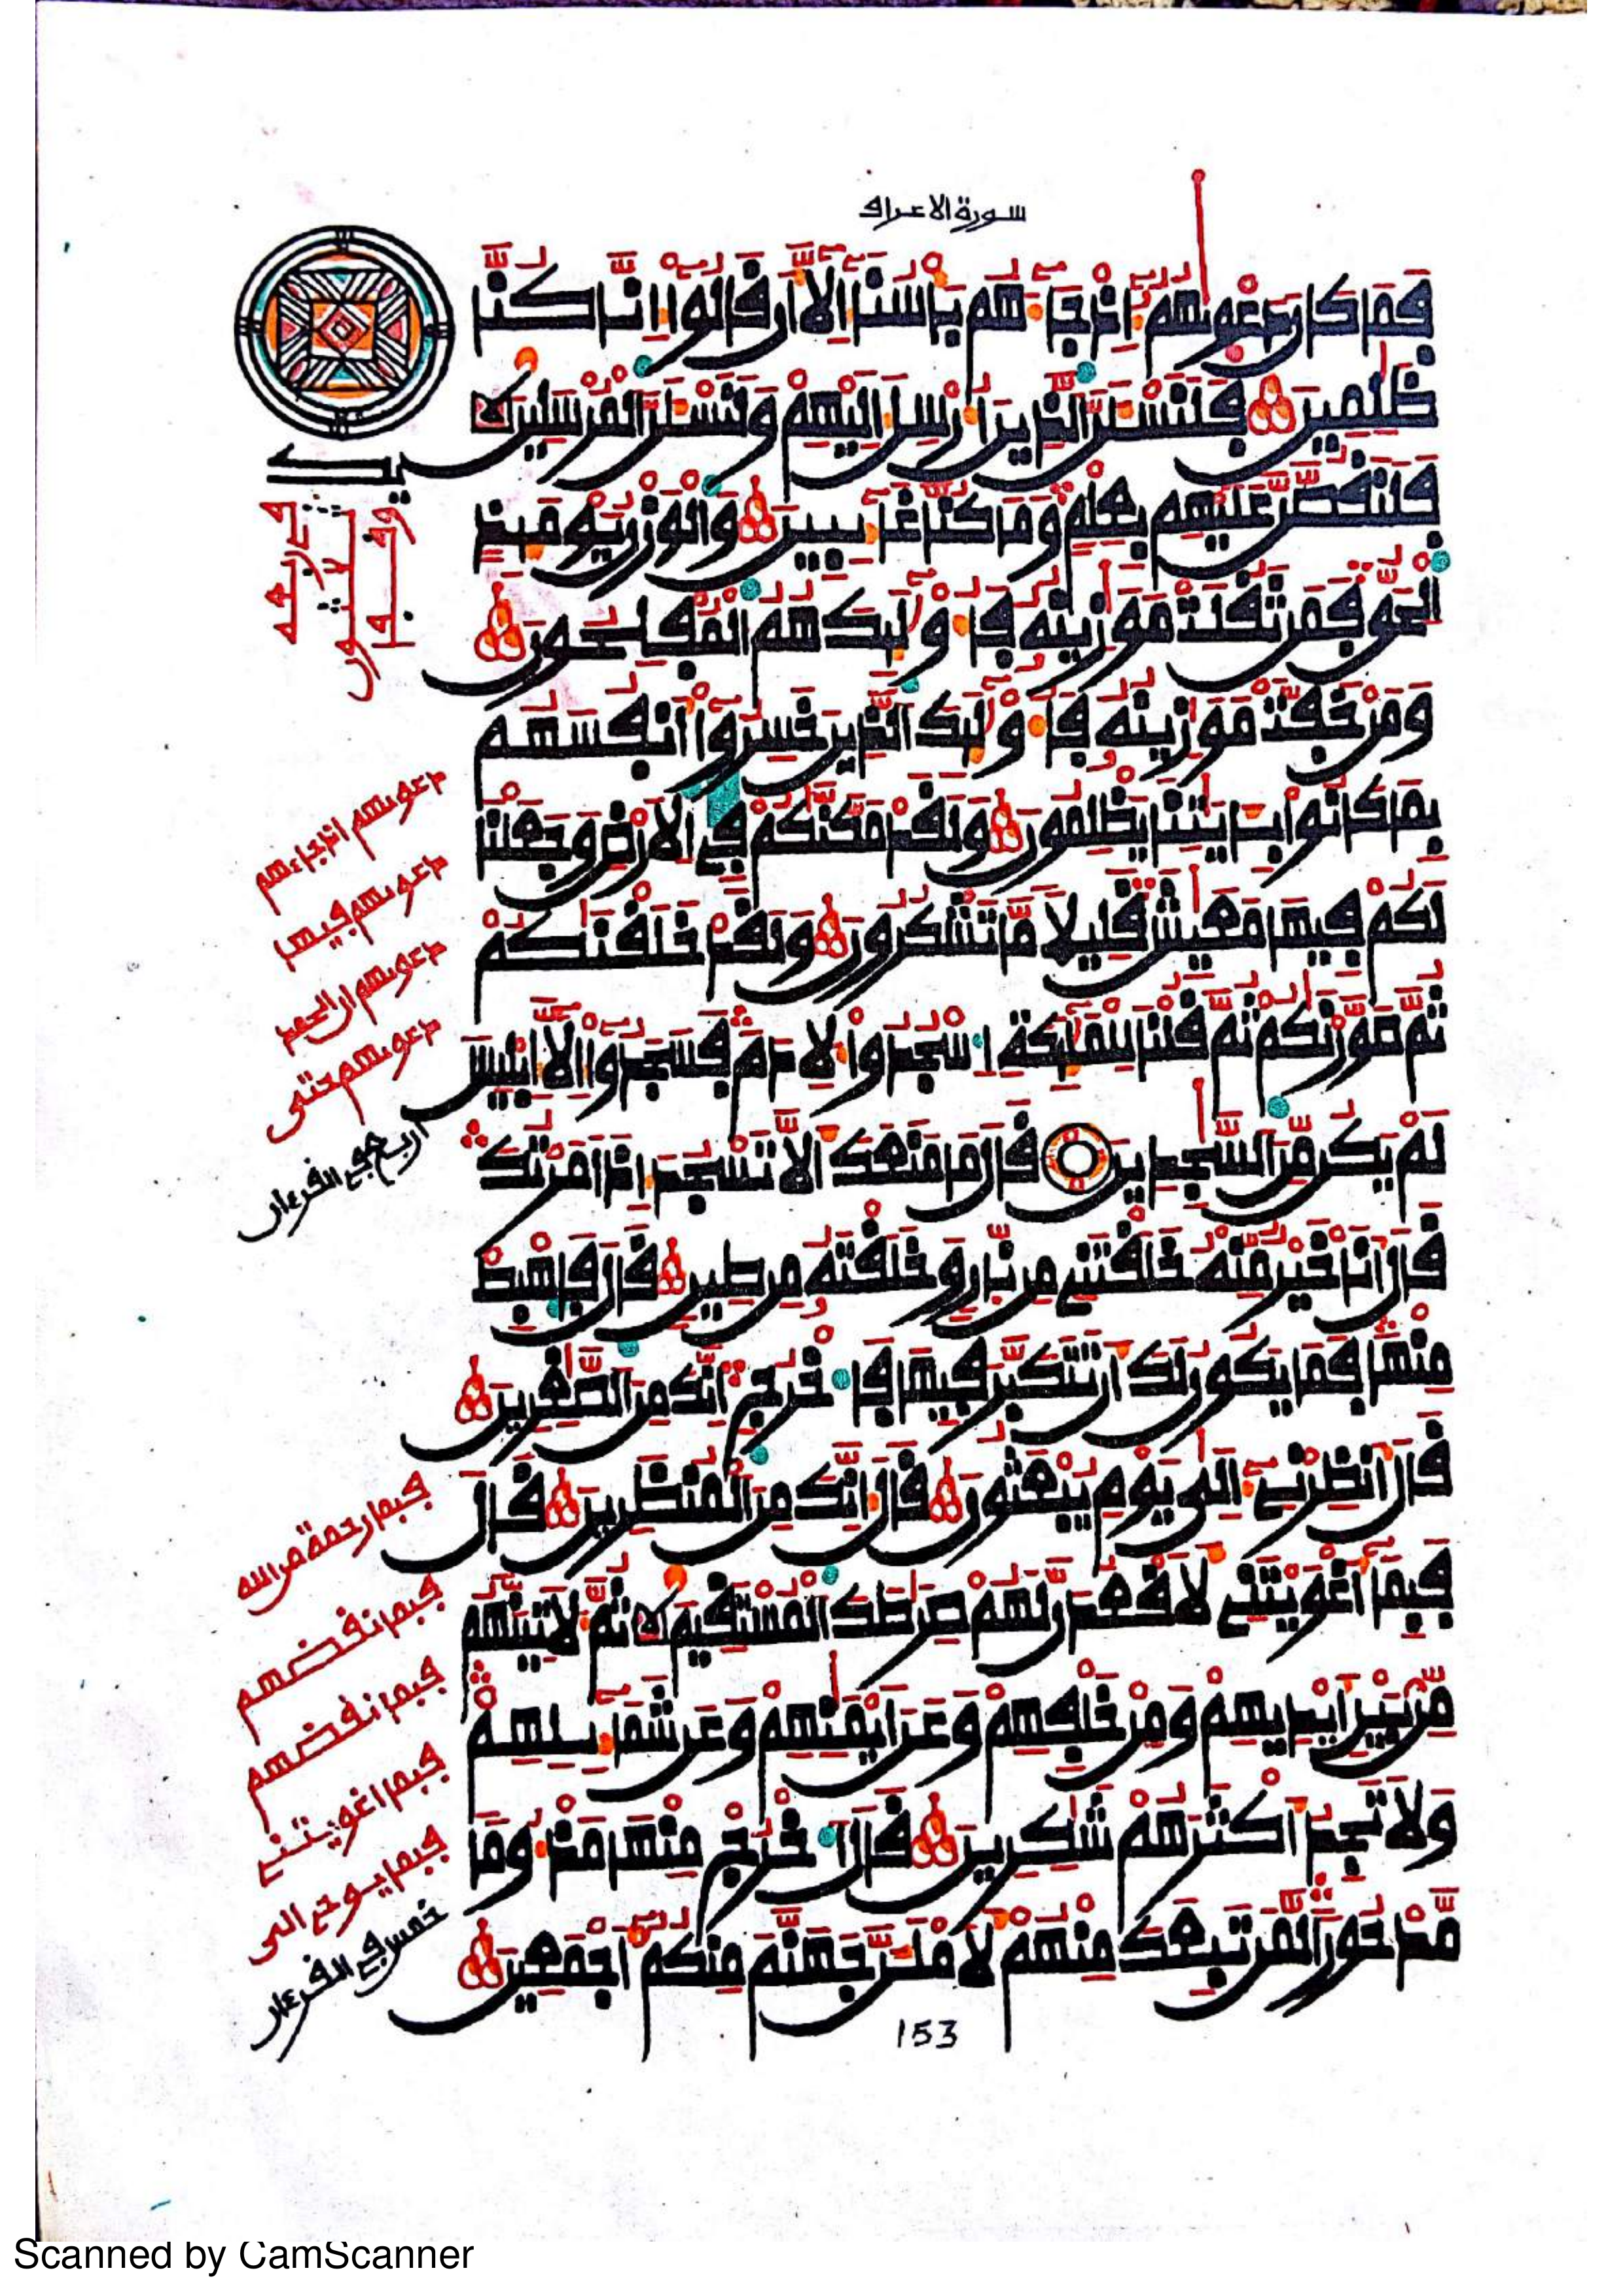 سورة الاعراف
فَمَا كَانَ دَعْوِيٰهُمُۥٓ إِذْ جَآءَهُم بَأْسُنَآ إِلَّآ أَن قَالُوٓاْ إِنَّا كُنَّا
ظَٰلِمِينَ فَلَنَسْـَٔلَنَّ ٱلَّذِينَ أُرْسِلَ إِلَيْهِمْ وَلَنَسْـَٔلَنَّ ٱلْمُرْسَلِينَ
فَلَنَقُصَّنَّ عَلَيْهِم بِعِلْمٍ وَمَا كُنَّا غَآئِبِينَ وَٱلْوَزْنُ يَوْمَئِذٍ
ٱلْحَقُّ فَمَن ثَقُلَتْ مَوَٰزِينُهُۥ فَأُوْلَٰٓئِكَ هُمُ ٱلْمُفْلِحُونَ
وَمَنْ خَفَّتْ مَوَٰزِينُهُۥ فَأُوْلَٰٓئِكَ ٱلَّذِينَ خَسِرُوٓاْ أَنفُسَهُم
بِمَا كَانُواْ بِـَٔايَٰتِنَا يَظْلِمُونَ وَلَقَدْ مَكَّنَّٰكُمْ فِي ٱلْأَرْضِ وَجَعَلْنَا
لَكُمْ فِيهَا مَعَٰيِشَ قَلِيلًا مَّا تَشْكُرُونَ وَلَقَدْ خَلَقْنَٰكُمْ
ثُمَّ صَوَّرْنَٰكُمْ ثُمَّ قُلْنَا لِلْمَلَٰٓئِكَةِ ٱسْجُدُواْ لِأَدَمَ فَسَجَدُوٓاْ إِلَّآ إِبْلِيسَ
لَمْ يَكُن مِّنَ ٱلسَّٰجِدِينَ قَالَ مَا مَنَعَكَ أَلَّا تَسْجُدَ إِذْ أَمَرْتُكَ
قَالَ أَنَا خَيْرٌ مِّنْهُ خَلَقْتَنِي مِن نَّارٍ وَخَلَقْتَهُۥ مِن طِينٍ قَالَ فَاهْبِطْ
مِنْهَا فَمَا يَكُونُ لَكَ أَن تَتَكَبَّرَ فِيهَا فَٱخْرُجْ إِنَّكَ مِنَ ٱلصَّٰغِرِينَ
قَالَ أَنظِرْنِيٓ إِلَىٰ يَوْمِ يُبْعَثُونَ قَالَ إِنَّكَ مِنَ ٱلْمُنظَرِينَ قَالَ
فَبِمَآ أَغْوَيْتَنِي لَأَقْعُدَنَّ لَهُمْ صِرَٰطَكَ ٱلْمُسْتَقِيمَ ثُمَّ لَأٓتِيَنَّهُم
مِّنۢ بَيْنِ أَيْدِيهِمْ وَمِنْ خَلْفِهِمْ وَعَنْ أَيْمَٰنِهِمْ وَعَن شَمَآئِلِهِمْ
وَلَا تَجِدُ أَكْثَرَهُمْ شَٰكِرِينَ قَالَ ٱخْرُجْ مِنْهَا مَذْءُومًا
مَّدْحُورًا لَّمَن تَبِعَكَ مِنْهُمْ لَأَمْلَأَنَّ جَهَنَّمَ مِنكُمُۥٓ أَجْمَعِينَ
دعويهم اذ جاءهم
دعويهم فيها
دعويهم ان الحمد
دعويهم حتى
اربع في القرءان
فبما رحمة من الله
فبما نقضهم
فبما نقضهم
فبما اغويتني
فبما يوحى الى
خمس في القرءان
153
Scanned by CamScanner